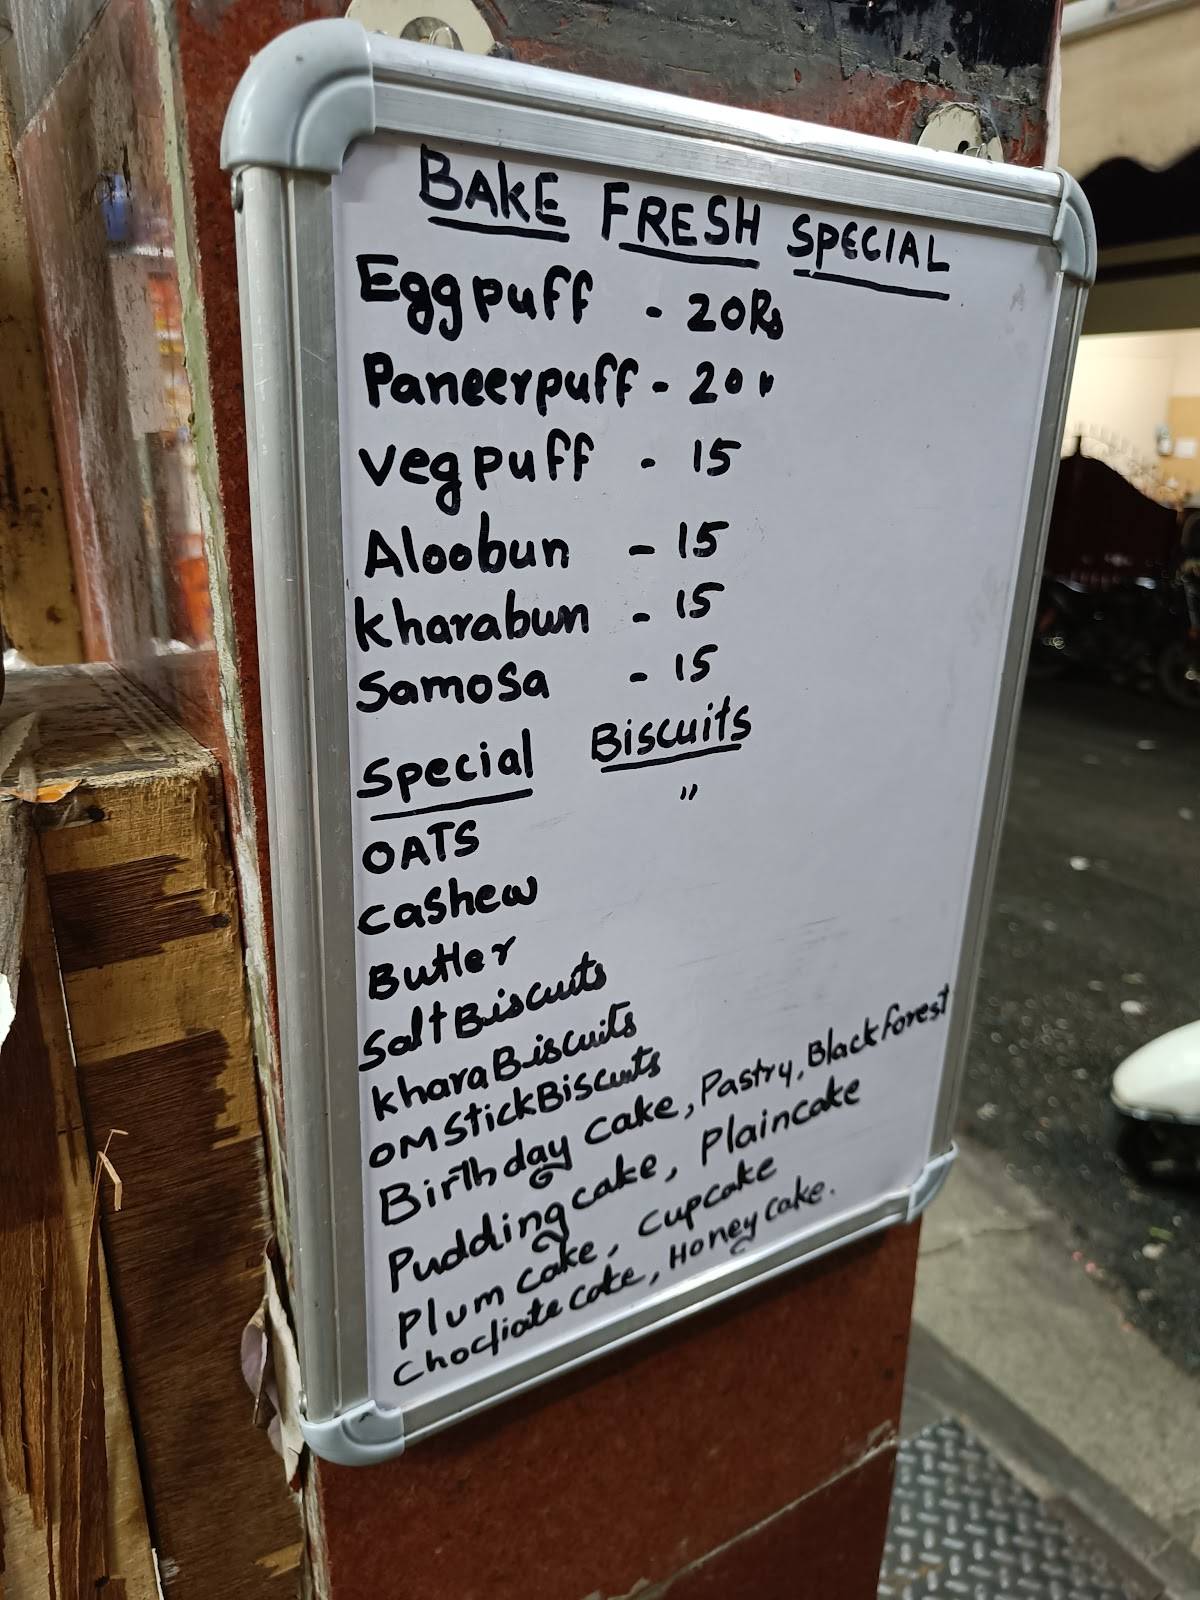 BAKE FRESH SPECIAL
Egg puff - 20Rs
Paneerpuff - 20 "
veg puff - 15
Aloobun - 15
kharabun - 15
Samosa - 15
Special Biscuits
"
OATS
cashew
Butter
Salt Biscuits
khara Biscuits
OM Stick Biscuits
Birthday cake, Pastry, Black forest
Pudding cake, Plaincake
Plum cake, Cupcake
Choclate cake, Honey cake.